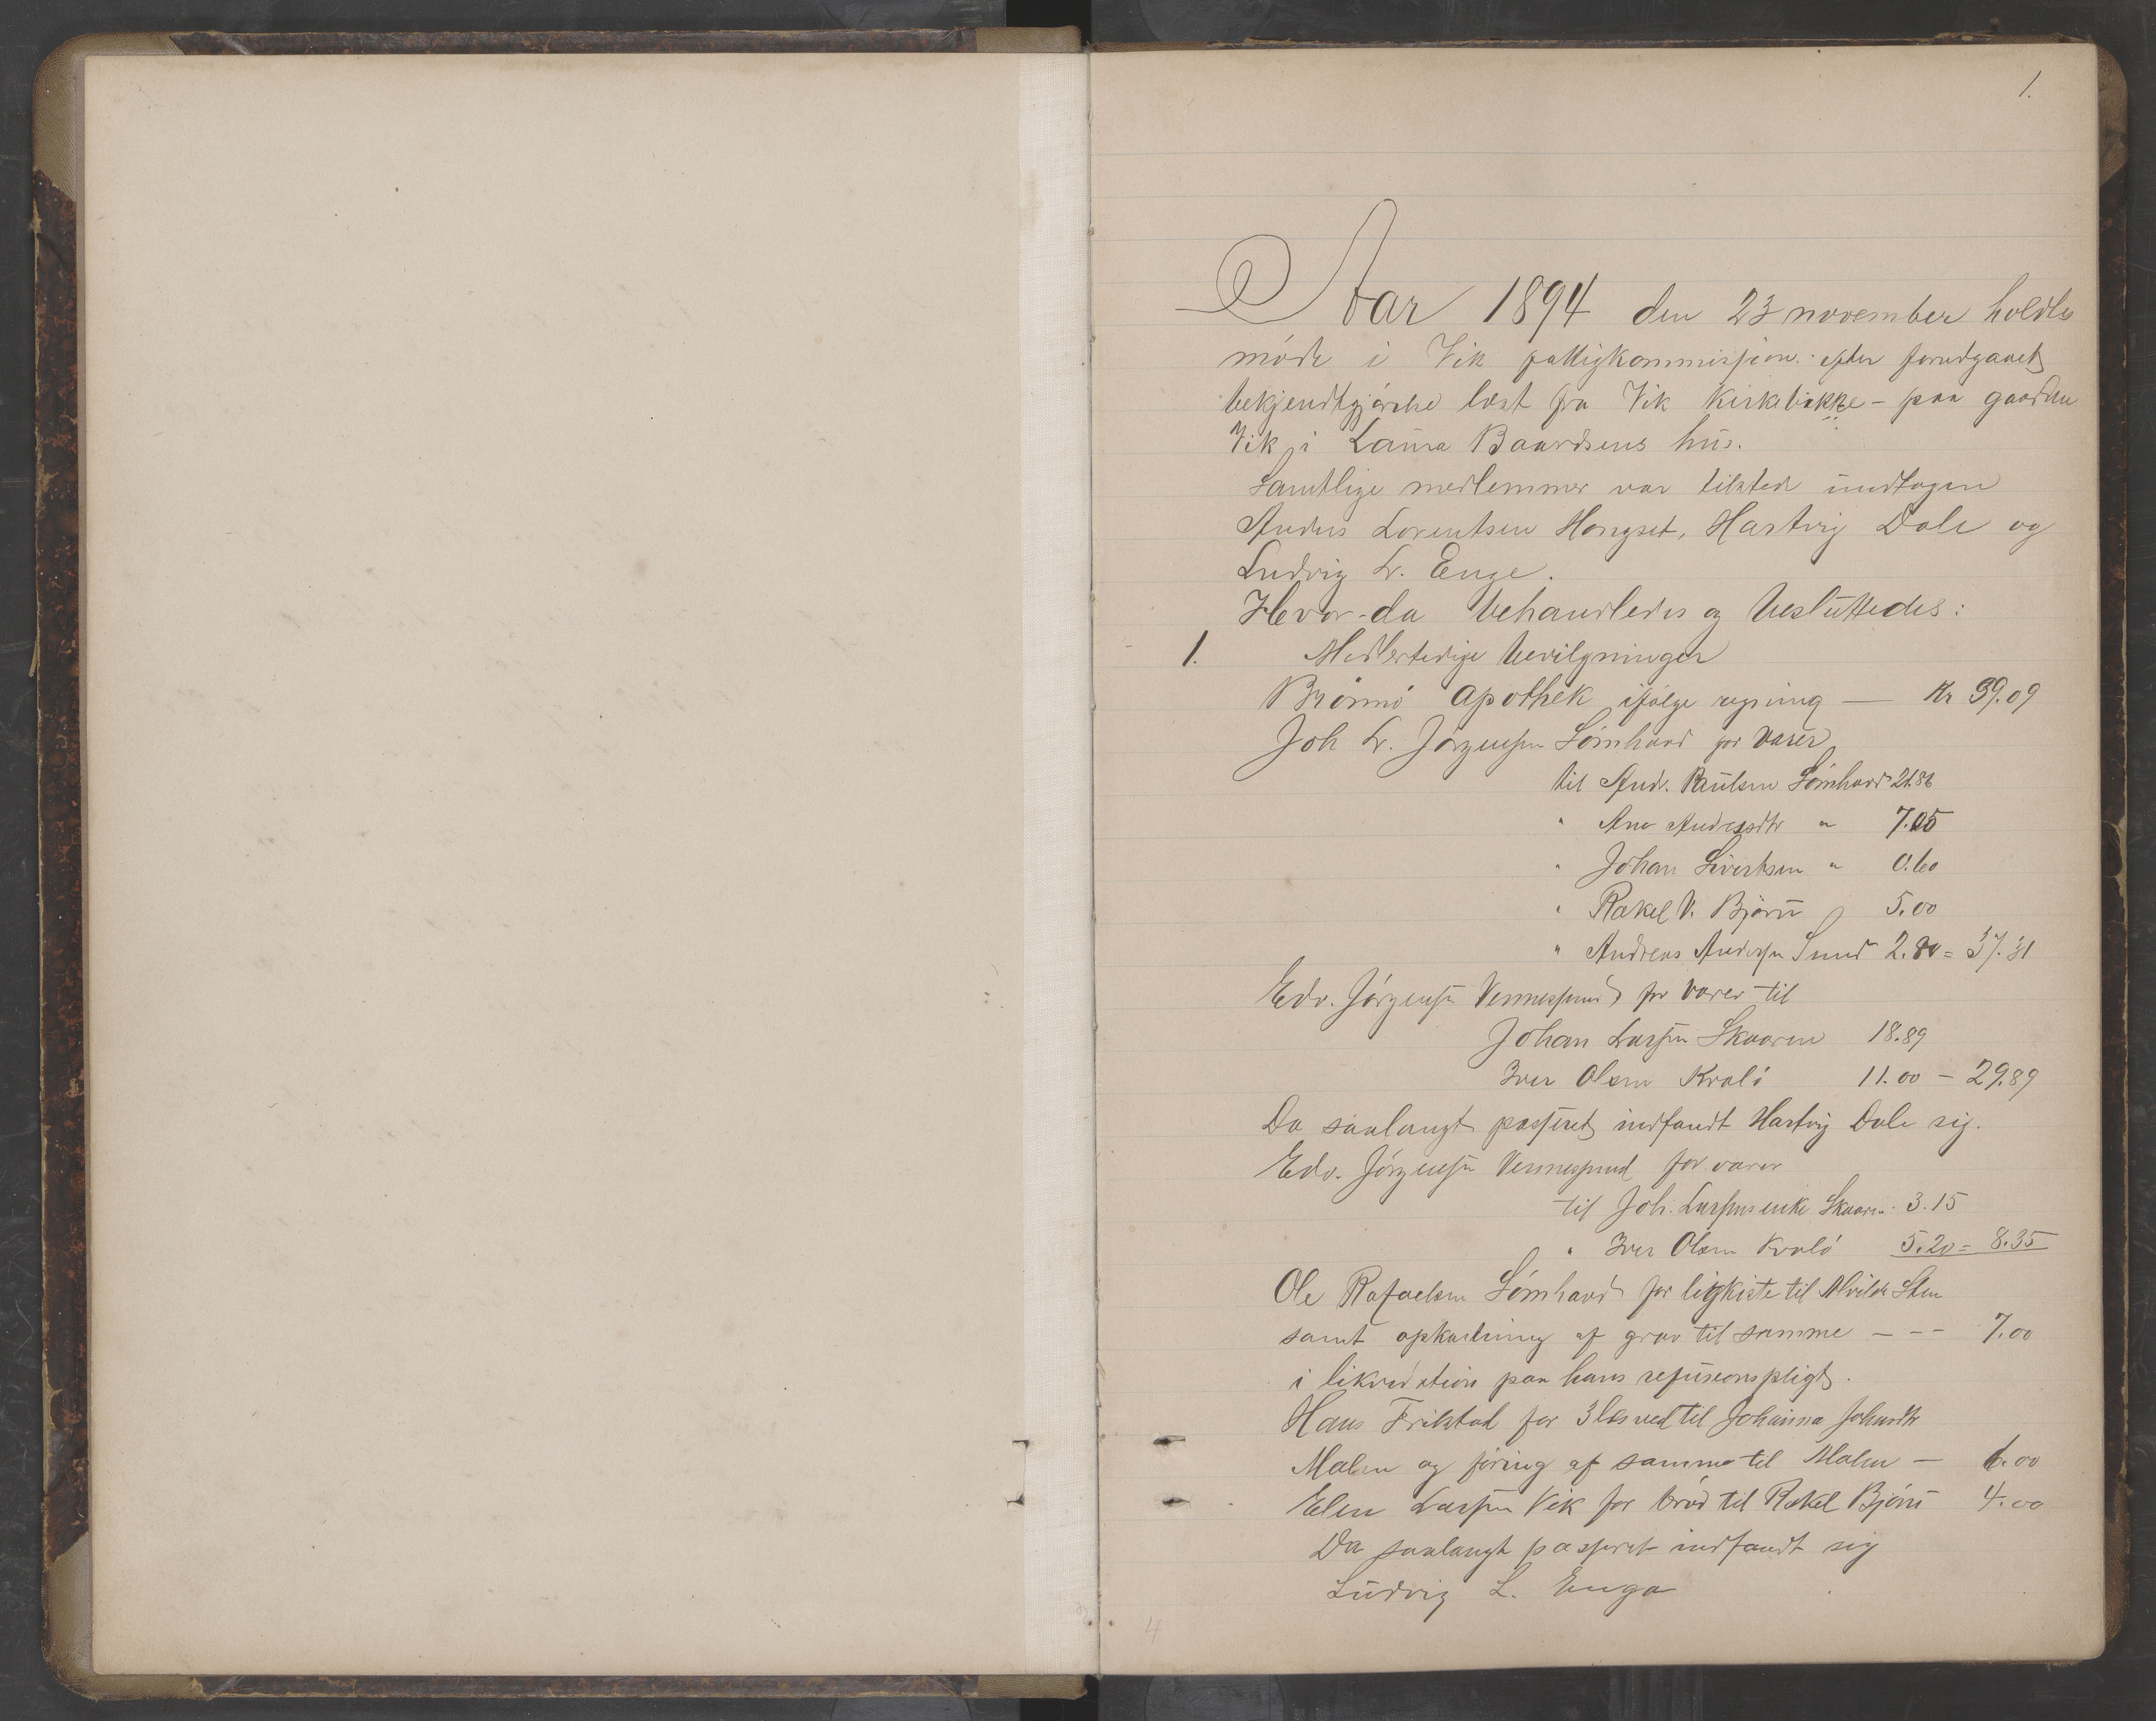 1.
Aar 1894 den 23 november holdtes
möde i Vik fattigkommission efter forudgaaet
bekjendtgjörelse læst fra Vik Kirkebakke - paa gaarden
Vik i Laura Baardsens hus.
Samtlige medlemmer var tilstede undtagen
Anders Lorentsen Hongset, Hartvig Dale og
Ludvig L. Enge.
Hvor da behandledes og besluttedes:
1. Midlertidige bevilgninger
Brönnö apothek ifölge regning — Kr 39.09
Joh L. Jörgensen Sömhovd for varer
til Andr. Paulsen Sömhovd 21.86
" Ane Andersdtr " 7.05
" Johan Sivertsen " 0.60
" Rakel V. Bjørnö 5.00
" Andreas Andersen Sund 2.80 = 37.31
Edv. Jörgensen Vennesund for varer til
Johan Larsen Skaaren 18.89
Iver Olsen Kvalö 11.00 - 29.89
Da saalangt passeret indfandt Hartvig Dale sig.
Edv. Jörgensen Vennesund for varer
til Joh. Larsens enke Skaaren 3.15
" Iver Olsen Kvalö 5.20 = 8.35
Ole Rafaelsen Sömhovd for ligkiste til Alvilde Sten
samt opkastning af grav til samme - - - 7.00
i likvidation paa hans refusionspligt.
Hans Frilstad for 3 læs ved til Johanna Johnsdtr
Malen og föring af samme til Malen — 6.00
Elen Larsen Vik for bröd til Rakel Bjørnö 4.00
Da saalangt passeret indfandt sig
Ludvig L. Enge
4